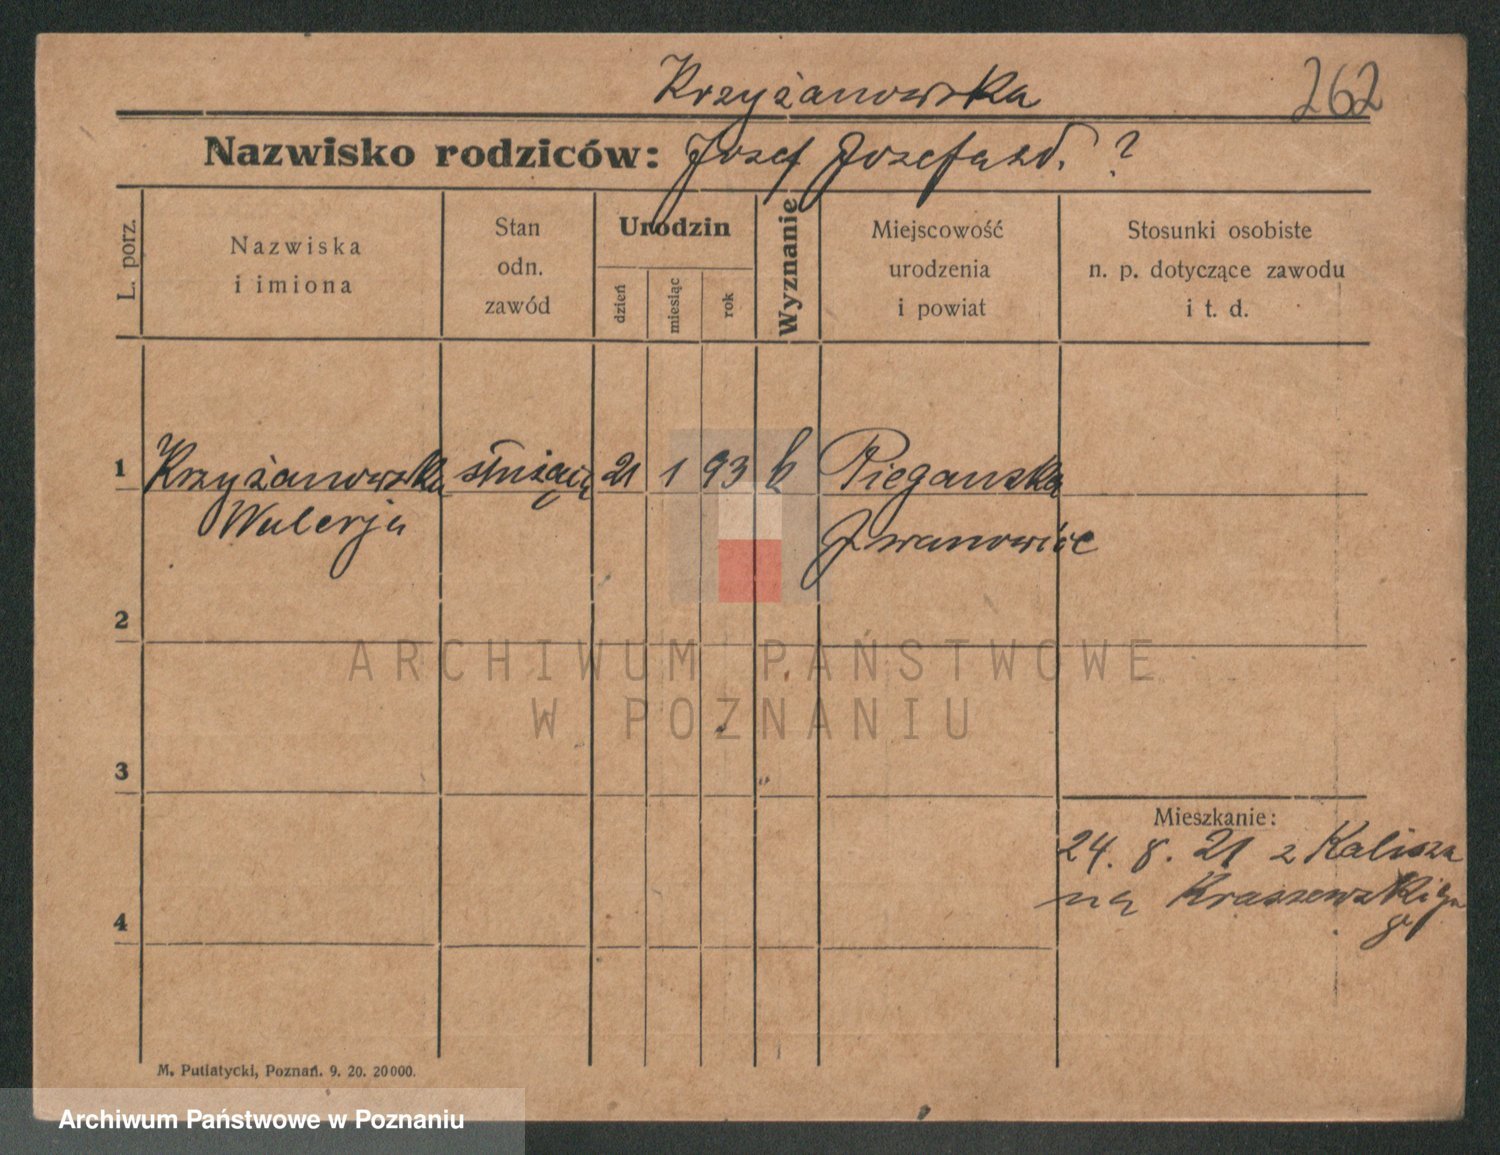 Krzyżanowska
262
Nazwisko rodziców: Josef Josefa zd. ?
L. porz.
Nazwiska
i imiona
Stan
odn.
zawód
Urodzin
dzień
miesiąc
rok
Wyznanie
Miejscowość
urodzenia
i powiat
Stosunki osobiste
n. p. dotyczące zawodu
i t. d.
1 Krzyżanowska służąca 21 1 93 k Pieganska
Walerja Iwanowice
2
3
4
Mieszkanie:
24. 8. 21 z Kalisza
na Kraszewskiego
M. Putiatycki, Poznań. 9. 20. 20000.
ARCHIWUM PAŃSTWOWE
W POZNANIU
Archiwum Państwowe w Poznaniu